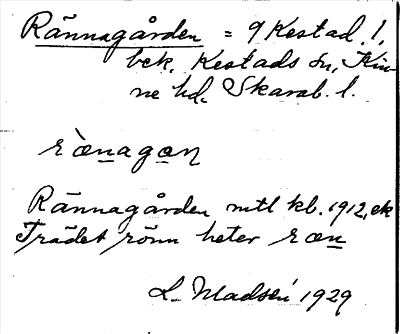 Rännagården = 9 Kestad. 1,
bek. Kestads sn, Kin-
ne hd. Skarab. l.
rænagɑn
Rännagården mtl kb. 1912, ek
Trädet rönn heter ræn
L. Madsén 1929